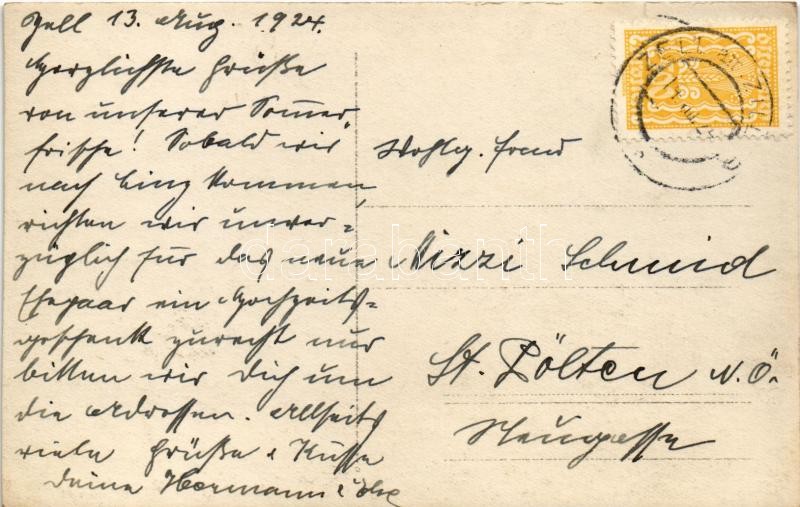 Zell 13. Aug. 1924.
Herzlichste Grüße
von unserer Sommer-
frische! Sobald wir
nach Linz kommen,
richten wir unver=
züglich für das neue
Ehepaar ein Hochzeits=
geschenk zurecht nur
bitten wir Dich um
die Adressen. Allseits
viele Grüße & Küsse
Deine Hermann &
Wohlg.
Mizzi Schmid
St. Pölten N.Ö.
Neugasse
ZELL
darabanth